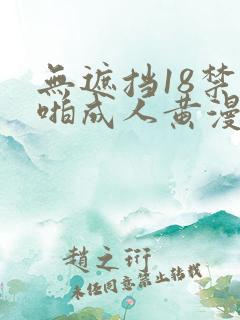 無遮挡18禁
啪成人黄漫
趙之珩
未任同意禁止转载